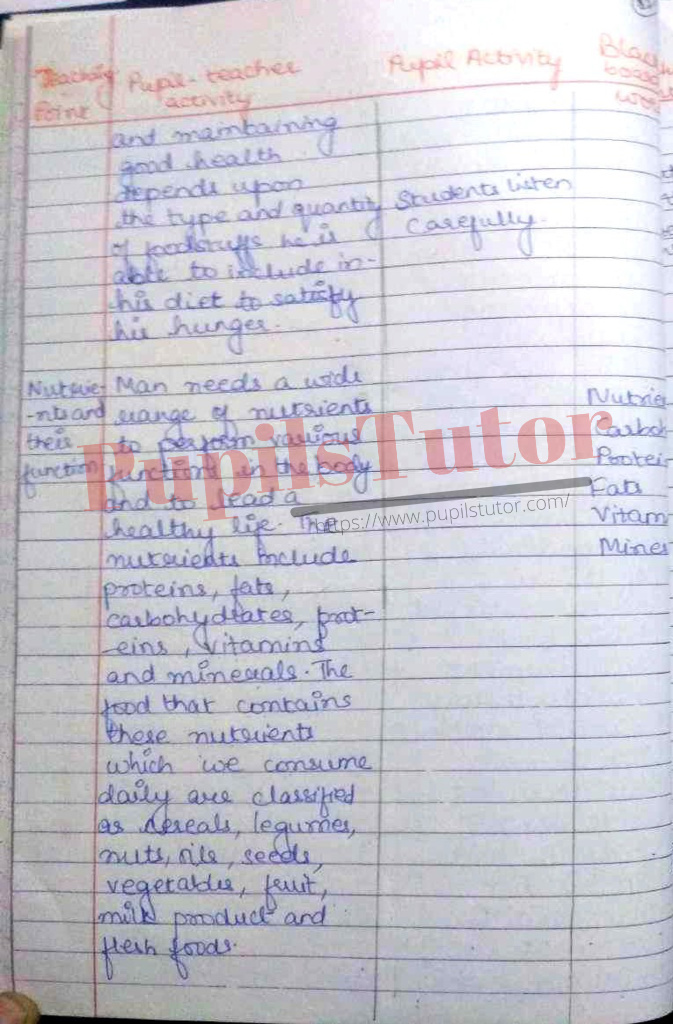 Teaching Point
Pupil-teacher activity
Pupil Activity
Black board work
and maintaining
good health
depends upon
the type and quantity
of foodstuffs he is
able to include in-
his diet to satisfy
his hunger.
Students listen
Carefully.
Nutrie-
-nts and
their
function
Man needs a wide
range of nutrients
to perform various
functions in the body
and to lead a
healthy life. The
nutrients include
proteins, fats,
carbohydrates, prot-
-eins, vitamins
and minerals. The
food that contains
these nutrients
which we consume
daily are classified
as cereals, legumes,
nuts, oils, seeds,
vegetables, fruit,
milk product and
flesh foods.
Nutrie-
Carboh-
Protei-
Fats
Vitam
Miner
PupilsTutor
https://www.pupilstutor.com/